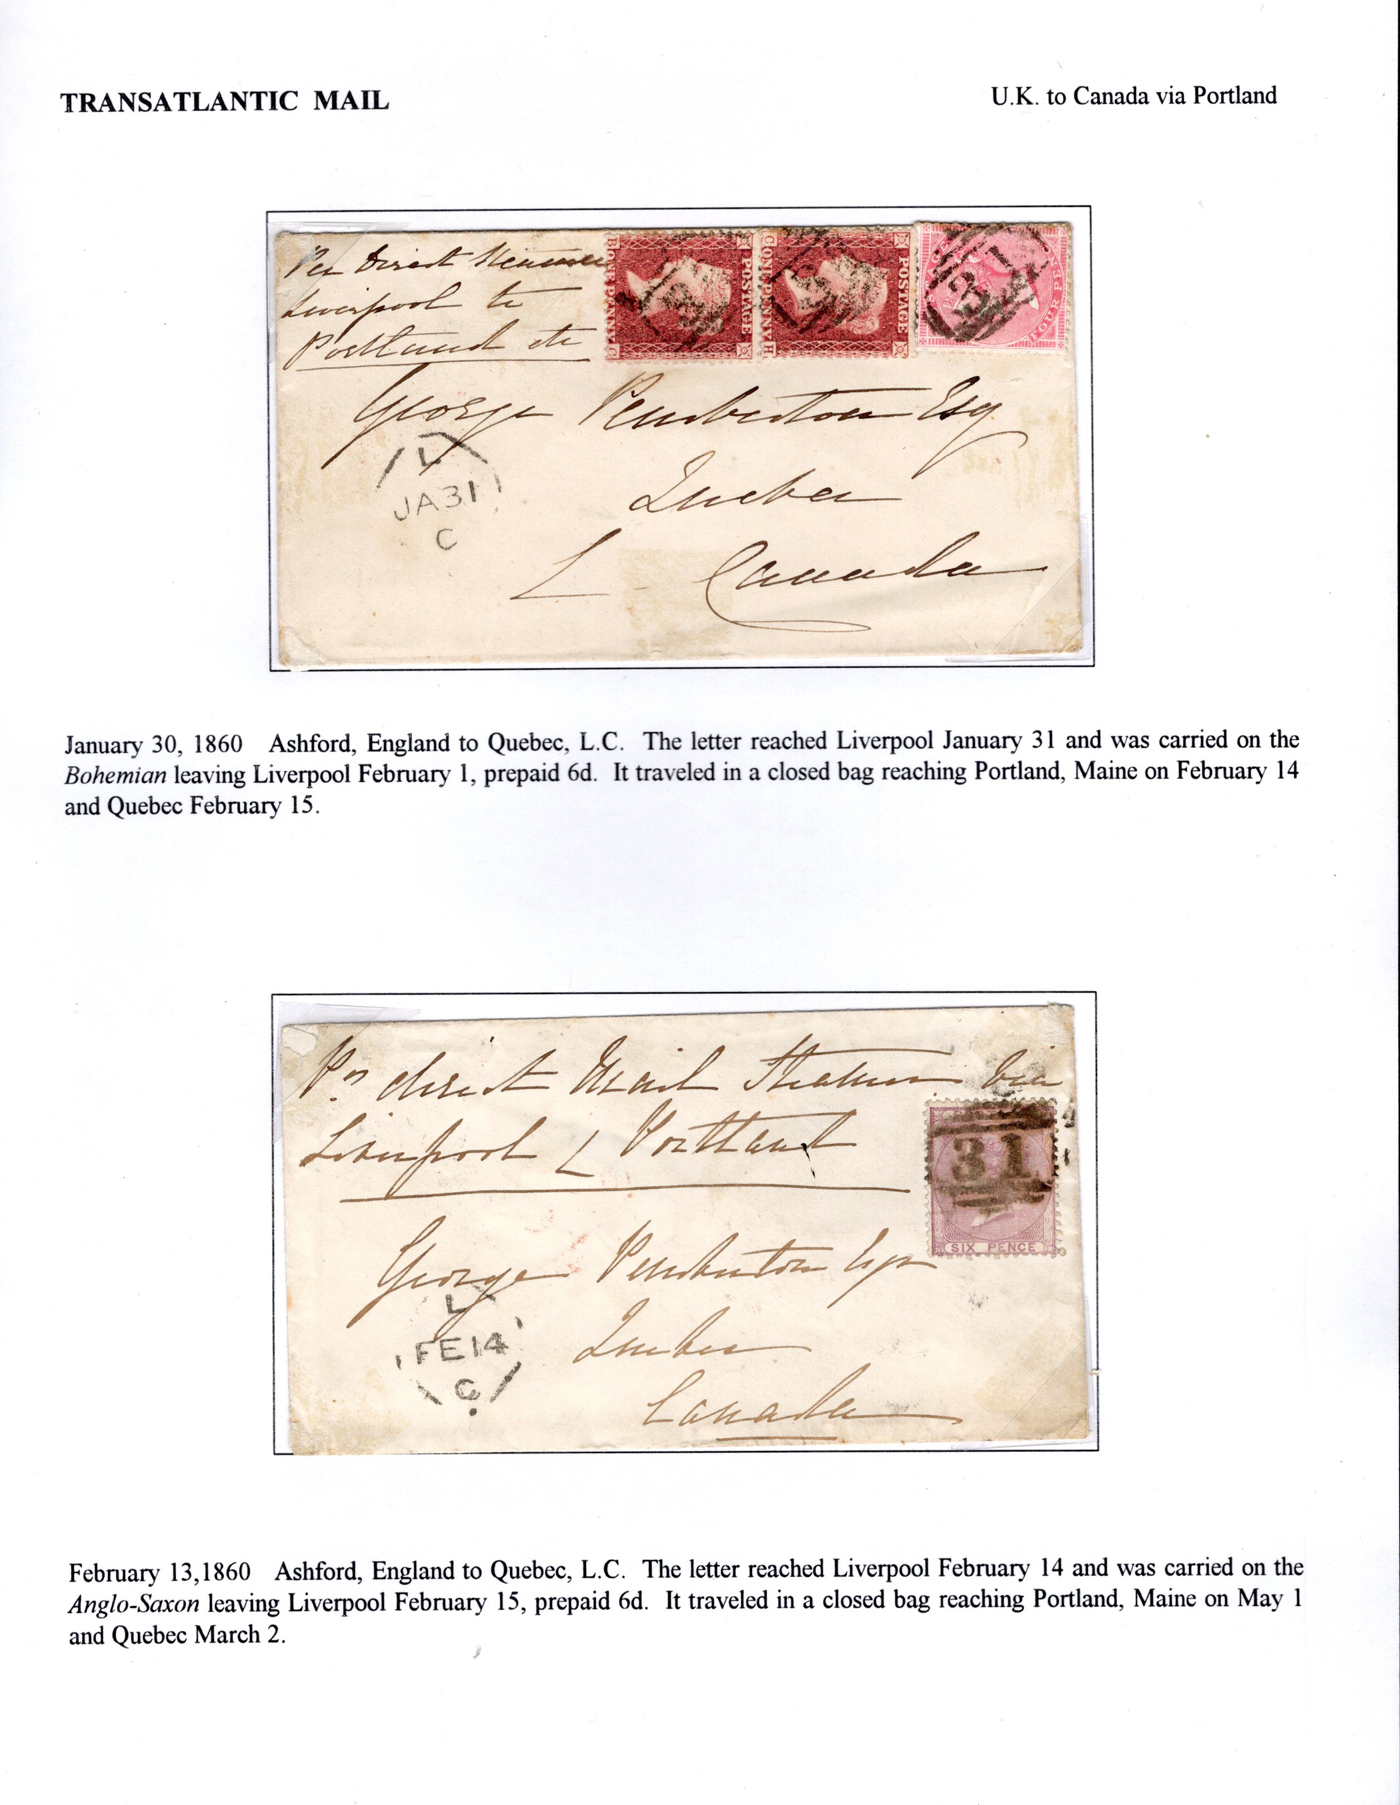 TRANSATLANTIC MAIL
U.K. to Canada via Portland
Per Direct Steamer
Liverpool to
Portland etc
ONE PENNY
POSTAGE
ONE PENNY
POSTAGE
POSTAGE
FOUR PENCE
31
George Pemberton Esq
L
JA31
C
Quebec
L Canada
January 30, 1860 Ashford, England to Quebec, L.C. The letter reached Liverpool January 31 and was carried on the
Bohemian leaving Liverpool February 1, prepaid 6d. It traveled in a closed bag reaching Portland, Maine on February 14
and Quebec February 15.
Pr direct Mail Steamer via
Liverpool & Portland
31
SIX PENCE
George Pemberton Esqr
L
FE14
C
Quebec
Canada
February 13,1860 Ashford, England to Quebec, L.C. The letter reached Liverpool February 14 and was carried on the
Anglo-Saxon leaving Liverpool February 15, prepaid 6d. It traveled in a closed bag reaching Portland, Maine on May 1
and Quebec March 2.